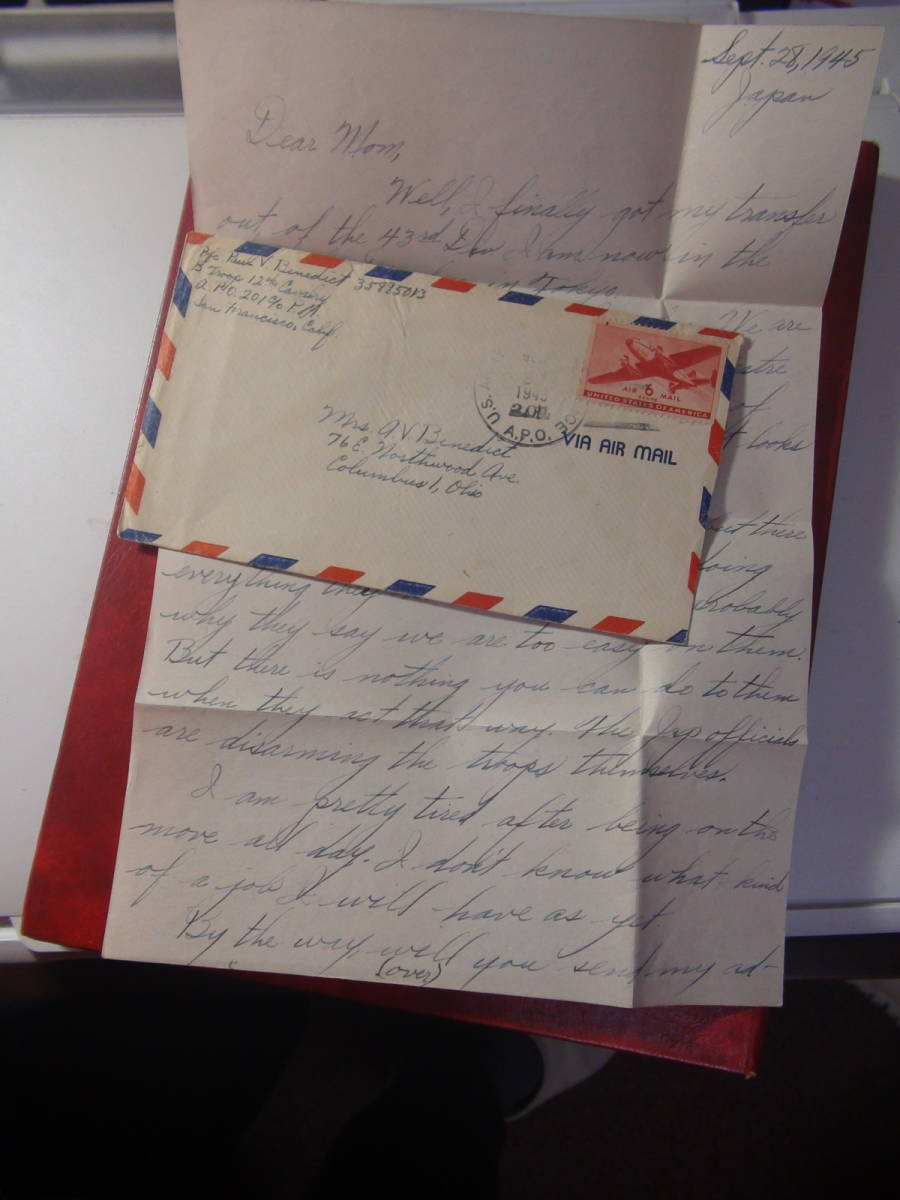 Sept. 28, 1945
Japan
Dear Mom,
Well, I finally got my transfer
out of the 43rd Div. I am now in the
in Tokyo
We are
looks
there
everything they
probably
why they say we are too easy on them.
But there is nothing you can do to them
when they act that way. The Jap officials
are disarming the troops themselves.
I am pretty tired after being on the
move all day. I don't know what kind
of a job I will have as yet.
By the way, will you send my ad-
(over)
Pfc Paul V Benedict 35895013
B Troop 12th Cavalry
A.P.O. 201 c/o P.M.
San Francisco, Calif.
1945
U.S. A.P.O.
AIR 6 MAIL
CENTS
UNITED STATES OF AMERICA
VIA AIR MAIL
Mrs. A V. Benedict
76 E. Northwood Ave.
Columbus 1, Ohio